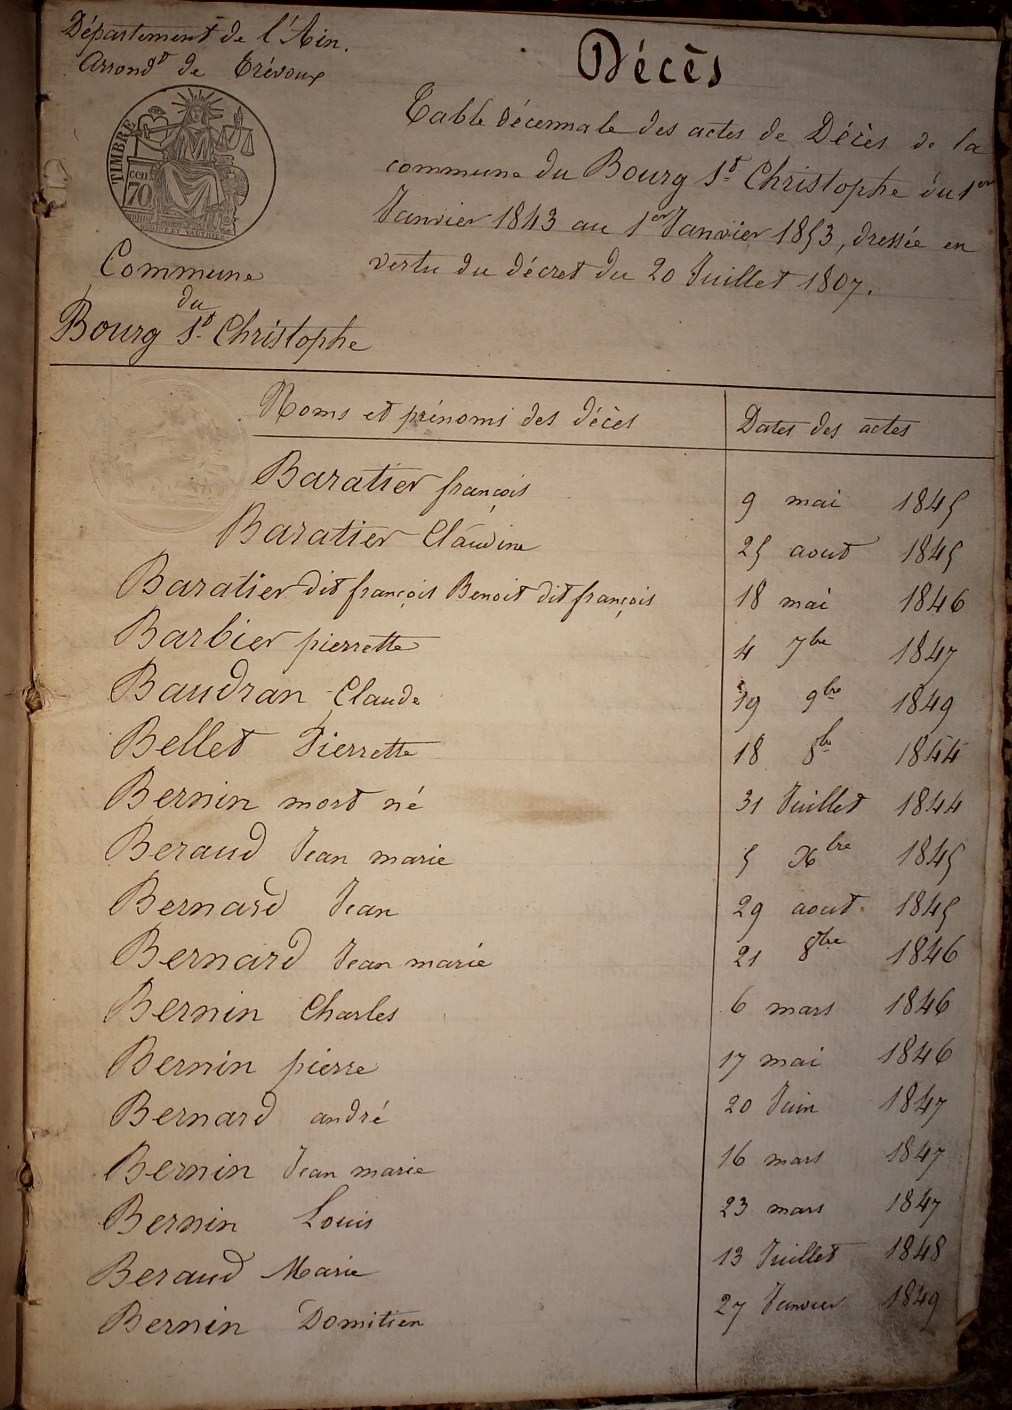 Département de l'Ain.
Arrond.t de Trévoux
TIMBRE
cen
70
Commune
du
Bourg S.t Christophe
Décès
Table décennale des actes de Décès de la
commune du Bourg S.t Christophe du 1er
Janvier 1843 au 1er Janvier 1853, dressée en
vertu du décret du 20 Juillet 1807.
Noms et prénoms des décès Dates des actes
Baratier françois 9 mai 1845
Baratier Claudine 25 aout 1845
Baratier dit françois Benoit dit françois 18 mai 1846
Barbier pierrette 4 7bre 1847
Baudran Claude 19 9bre 1849
Bellet Pierrette 18 8bre 1844
Bernin mort né 31 Juillet 1844
Beraud Jean marie 5 Xbre 1845
Bernard Jean 29 aout 1845
Bernard Jean marie 21 8bre 1846
Bernin Charles 6 mars 1846
Bernin pierre 17 mai 1846
Bernard andré 20 Juin 1847
Bernin Jean marie 16 mars 1847
Bernin Louis 23 mars 1847
Beraud Marie 13 Juillet 1848
Bernin Domitien 27 Janvier 1849